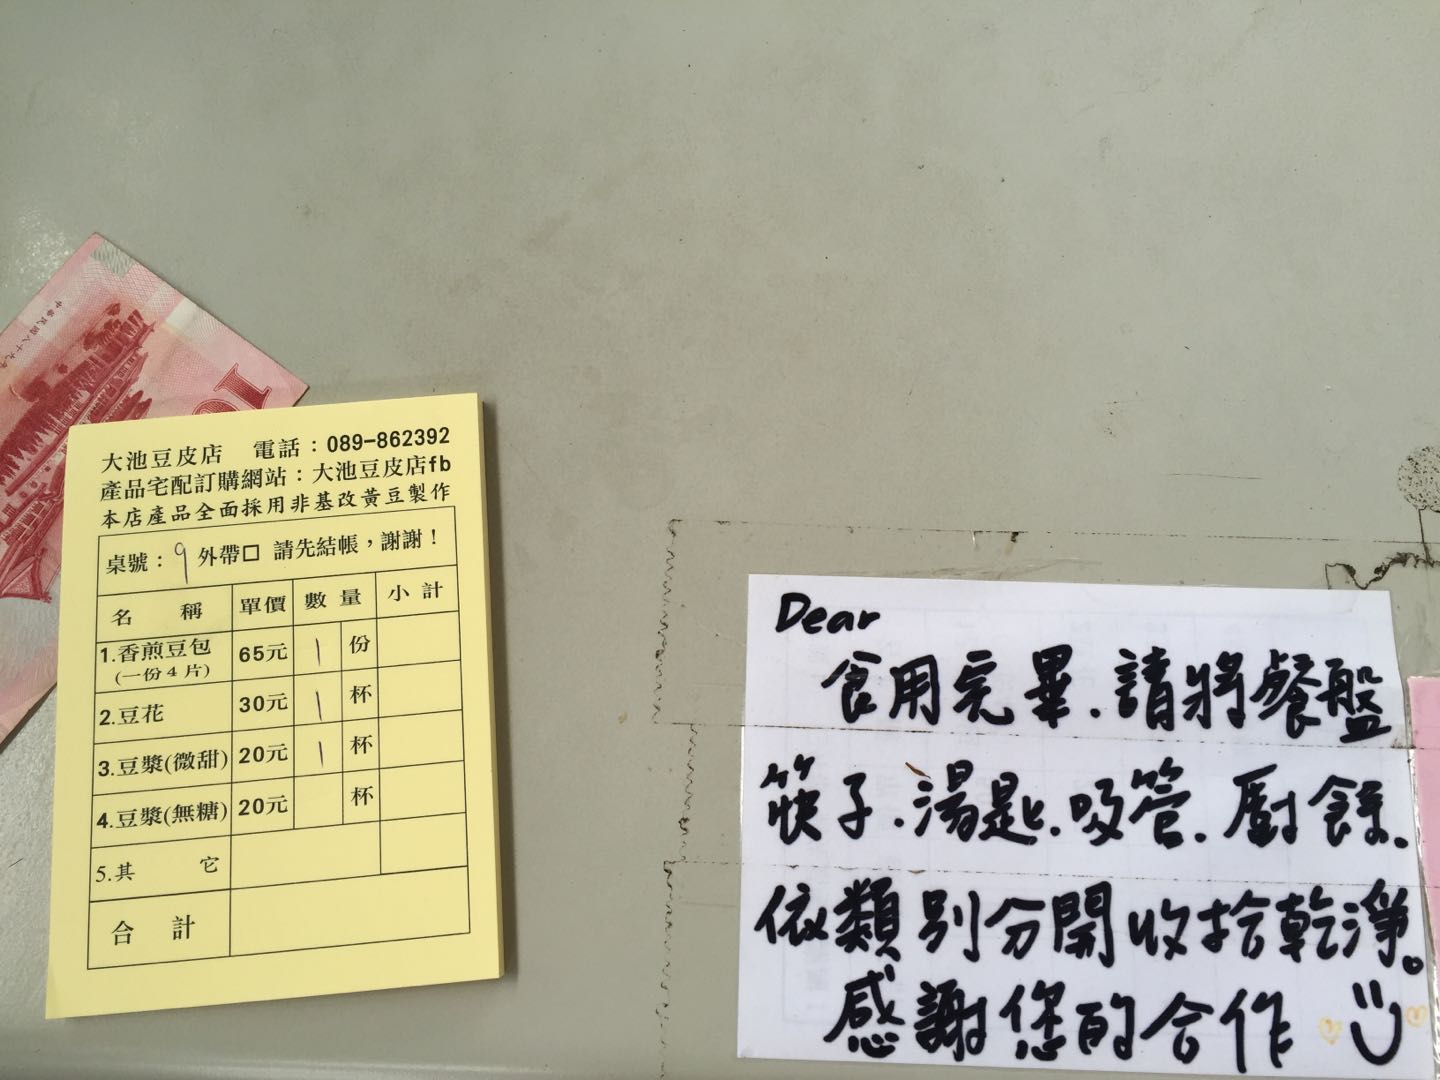 中華民國八十九年
大池豆皮店 電話：089-862392
產品宅配訂購網站：大池豆皮店fb
本店產品全面採用非基改黃豆製作
桌號：9 外帶□ 請先結帳，謝謝！
名稱 單價 數量 小計
1.香煎豆包 65元 1 份
(一份4片)
2.豆花 30元 1 杯
3.豆漿(微甜) 20元 1 杯
4.豆漿(無糖) 20元 杯
5.其它
合計
Dear
食用完畢.請將餐盤
筷子.湯匙.吸管.廚餘.
依類別分開收拾乾淨。
感謝您的合作